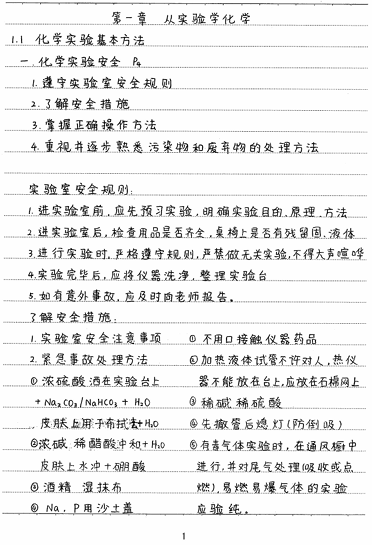 第一章 从实验学化学
1.1 化学实验基本方法
一.化学实验安全 P4
1.遵守实验室安全规则
2.了解安全措施
3.掌握正确操作方法
4.重视并逐步熟悉污染物和废弃物的处理方法
实验室安全规则:
1.进实验室前,应先预习实验,明确实验目的、原理、方法
2.进实验室后,检查用品是否齐全,桌椅上是否有残留固、液体
3.进行实验时,严格遵守规则,严禁做无关实验,不得大声喧哗
4.实验完毕后,应将仪器洗净,整理实验台
5.如有意外事故,应及时向老师报告。
了解安全措施:
1.实验室安全注意事项 ①不用口接触仪器药品
2.紧急事故处理方法 ②加热液体试管不许对人,热仪
①浓硫酸洒在实验台上 器不能放在台上,应放在石棉网上
+Na2CO3/NaHCO3+H2O ③稀碱稀硫酸
皮肤上用干布拭去+H2O ④先撤管后熄灯(防倒吸)
②浓碱 稀醋酸中和+H2O ⑤有毒气体实验时,在通风橱中
皮肤上水冲+硼酸 进行,并对尾气处理(吸收或点
③酒精 湿抹布 燃),易燃易爆气体的实验
④Na、P用沙土盖 应验纯。
1